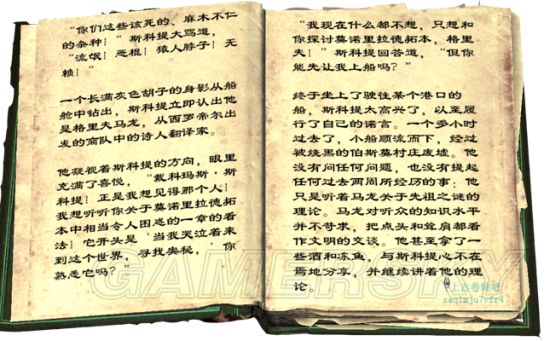 “你们这些该死的、麻木不仁
的杂种！”斯科提大骂道，
“流氓！恶棍！猿人脖子！无
赖！”
一个长满灰色胡子的身影从船
舱中钻出，斯科提立即认出他
是格里夫马龙，从西罗帝尔出
发的商队中的诗人翻译家。
他凝视着斯科提的方向，眼里
充满了喜悦，“戴科玛斯·斯
科提！正是我想见得那个人！
我想听听你关于莫诺里拉德拓
本中相当令人困惑的一章的看
法！它开头是‘当我哭泣着来
到这个世界，寻找奥秘，’你
熟悉它吗？”
“我现在什么都不想，只想和
你探讨莫诺里拉德拓本，格里
夫！”斯科提回答道，“但你
能先让我上船吗？”
终于坐上了驶往某个港口的
船，斯科提太高兴了，以至履
行了自己的诺言。一个多小时
过去了，小船顺流而下，经过
被烧黑的伯斯莫村庄废墟。他
没有问任何问题，也没有提起
任何过去两周所经历的事：他
只是听着马龙关于先祖之谜的
理论。马龙对听众的知识水平
并不苛求，把点头和耸肩都看
作文明的交谈。他甚至拿了一
些酒和冻鱼，与斯科提心不在
焉地分享，并继续讲着他的理
论。
GAMERSKY
上古卷轴吧
zaq1mju7vfr4